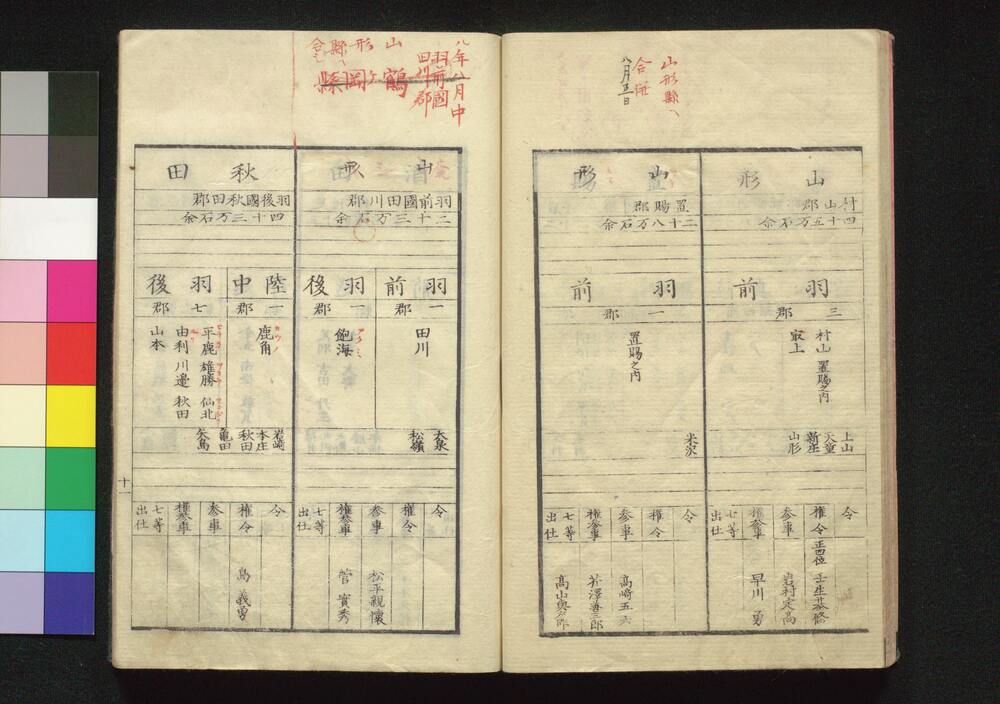 山形縣へ
合併
八月五日
山形
村山郡
四十五万石余
羽前
三郡
村山 置賜之内
最上
上山
天童
新庄
山形
令
権令 正四位 壬生基修
参事 岩村定高
権参事 早川勇
七等出仕
山形
置賜郡
二十八万石余
羽前
一郡
置賜之内
米沢
令
権令
参事 高崎五六
権参事 芹澤
七等出仕 高山與太郎
八年八月中
羽前國
田川郡
鶴ヶ岡縣
山形縣へ
合し
山形
羽前國田川郡
二十三万石余
羽前
一郡
田川
羽後
一郡
飽海
アクミ
大泉
松嶺
令
権令
参事 松平親懐
権参事 菅實秀
七等出仕
秋田
羽後國秋田郡
四十三万石余
陸中
一郡
鹿角
カツノ
羽後
七郡
平鹿 雄勝 仙北
由利 川邉 秋田
山本
岩崎
本庄
秋田
亀田
矢島
令
権令 島義勇
参事
権参事
七等出仕
十一